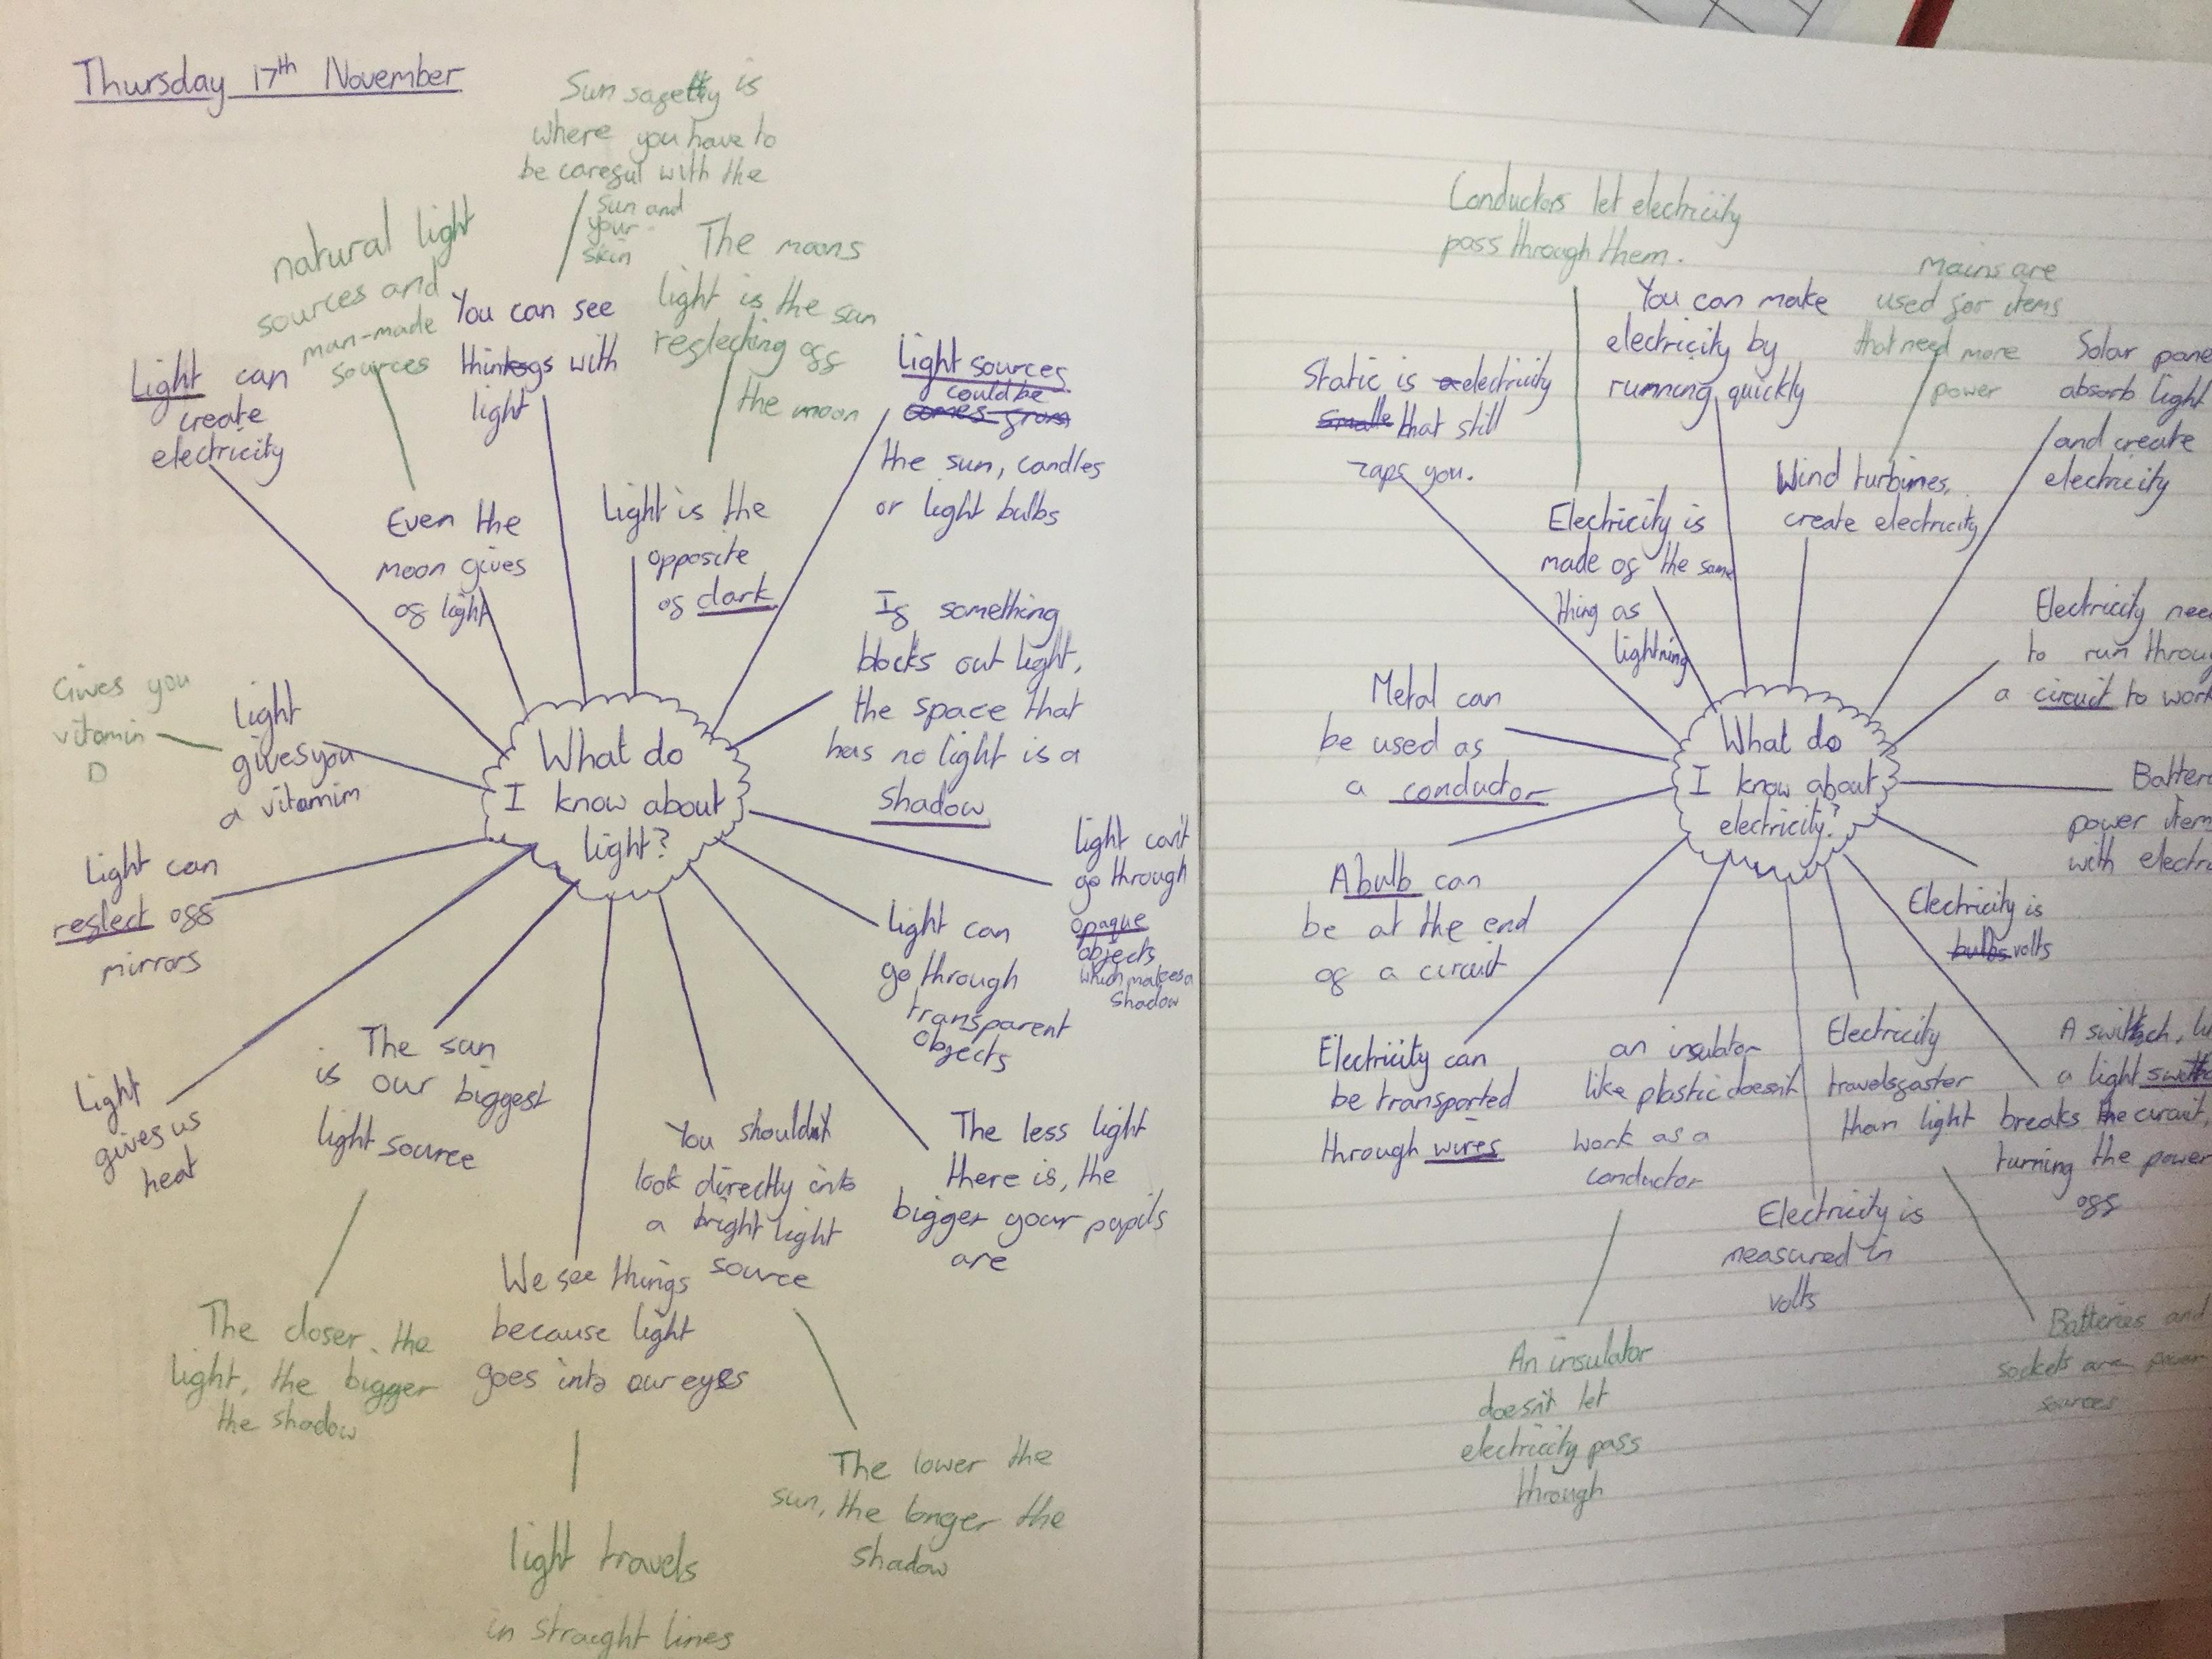 Thursday 17th November
Sun sagety is
where you have to
be caregul with the
sun and
your
skin
natural light
sources and
man-made
sources
The moons
light is the sun
reglecting ogg
the moon
Light can
create
electricity
You can see
things with
light
Light sources
could be
comes grom
the sun, candles
or light bulbs
Even the
moon gives
og light
Light is the
opposite
og dark
Ig something
blocks out light,
the space that
has no light is a
shadow
Gives you
vitamin
D
light
gives you
a vitamim
What do
I know about
light?
light can't
go through
opaque
objects
which makes a
shadow
Light can
reglect ogg
mirrors
light can
go through
transparent
objects
Light
gives us
heat
The sun
is our biggest
light source
You shouldn't
look directly into
a bright light
source
The less light
there is, the
bigger your pupils
are
We see things
because light
goes into our eyes
The closer the
light, the bigger
the shadow
The lower the
sun, the longer the
shadow
light travels
in straight lines
Conductors let electricity
pass through them.
Static is electricity
smalle that still
zaps you.
You can make
electricity by
running quickly
Mains are
used gor items
that need more
power
Solar pane
absorb light
and create
electricity
Electricity is
made og the same
thing as
lightning
Wind turbines,
create electricity
Electricity nee
to run throug
a circuit to work
Metal can
be used as
a conductor
What do
I know about
electricity?
Batter
power item
with electr
A bulb can
be at the end
og a circuit
Electricity is
bulbs volts
Electricity can
be transported
through wires
an insulator
like plastic doesn't
work as a
conductor
Electricity
travels gaster
than light
A switch, li
a light switch
breaks the circuit,
turning the power
ogg
Electricity is
measured in
volts
An insulator
doesn't let
electricity pass
through
Batteries and
sockets are power
sources